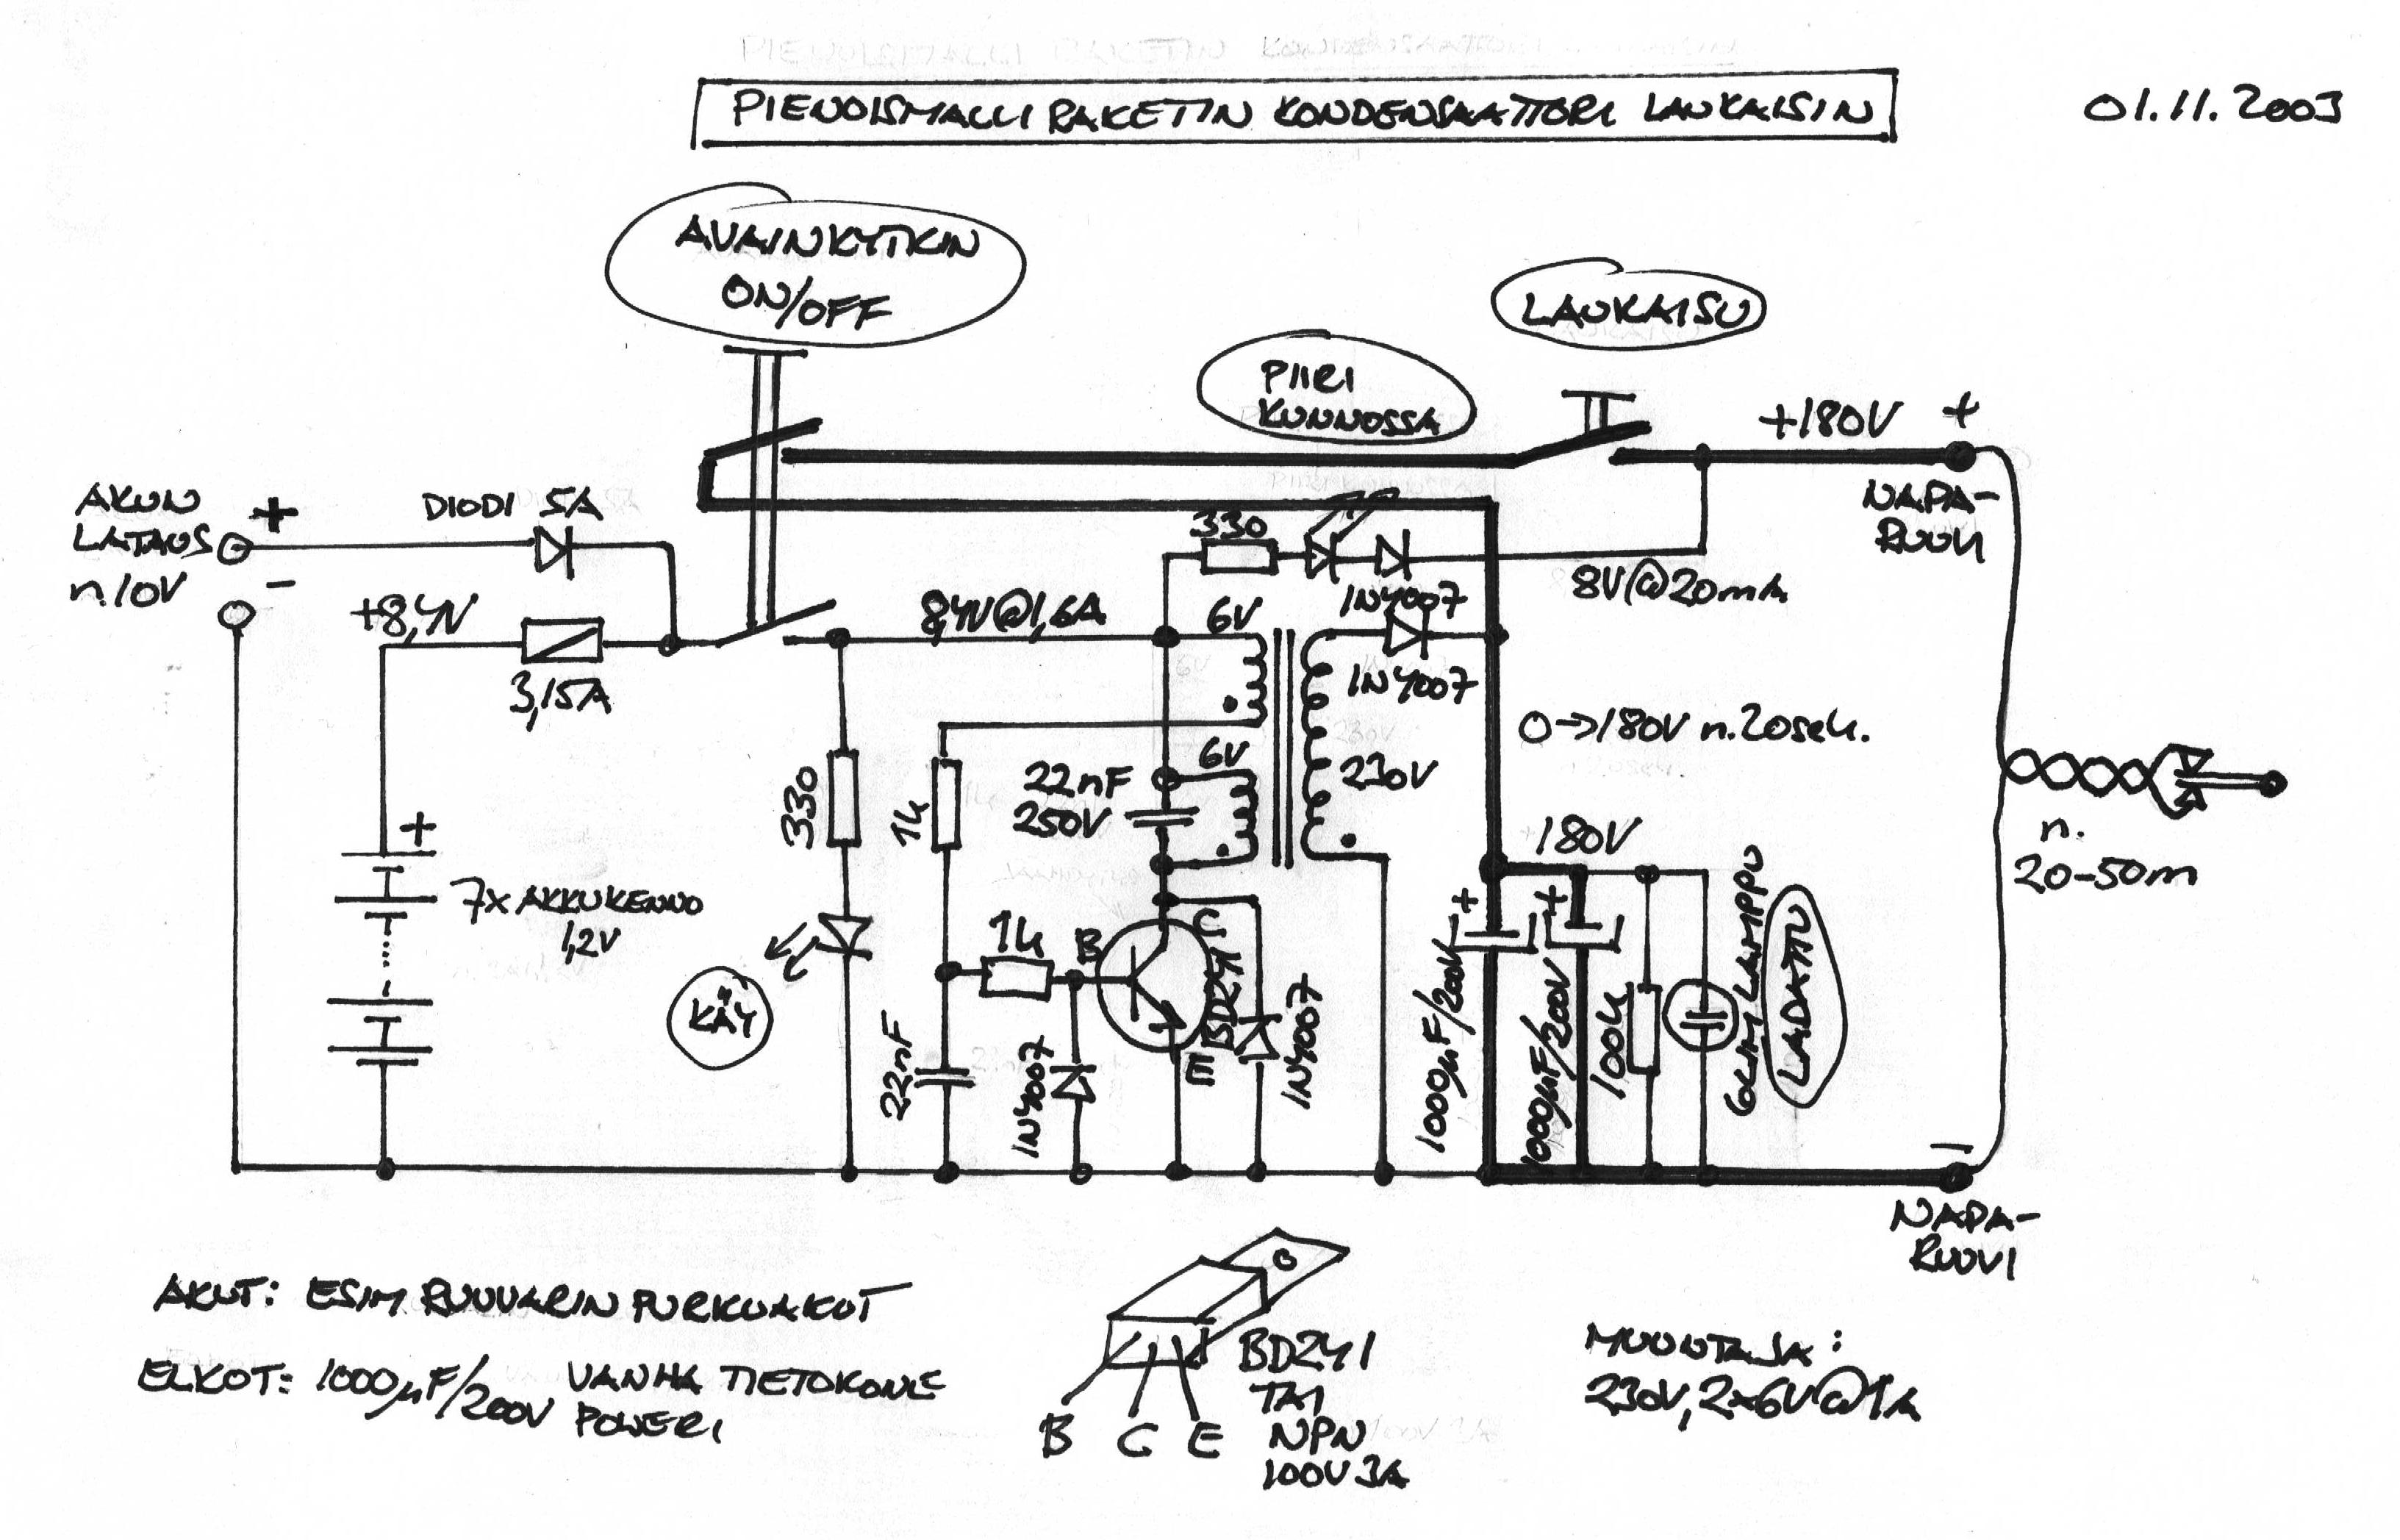 PIENOISMALLI RAKETIN KONDENSAATTORI LAUKAISIN
01.11.2003
AVAINKYTKIN
ON/OFF
LAUKAISU
PIIRI
KUNNOSSA
+180V
+
NAPA-
RUUVI
AKUN
LATAUS
n.10V
+
-
DIODI 5A
+8,4V
3,15A
8,4V@1,6A
330
1N4007
8V@20mA
6V
1N4007
0→180V n.20sek.
6V
230V
22nF
250V
330
1k
+
7x AKKUKENNO
1,2V
KÄY
22nF
1k
1N4007
B
C
E
BD241
1N4007
180V
+
+
1000µF/200V
1000µF/200V
100k
GLIMLAMPPU
LADATTU
n.
20-50m
-
NAPA-
RUUVI
AKUT: ESIM RUUVARIN PURKUAKUT
ELKOT: 1000µF/200V VANHA TIETOKONE
POWERI
B C E
BD241
TAI
NPN
100V 3A
MUUNTAJA:
230V, 2x6V@1A